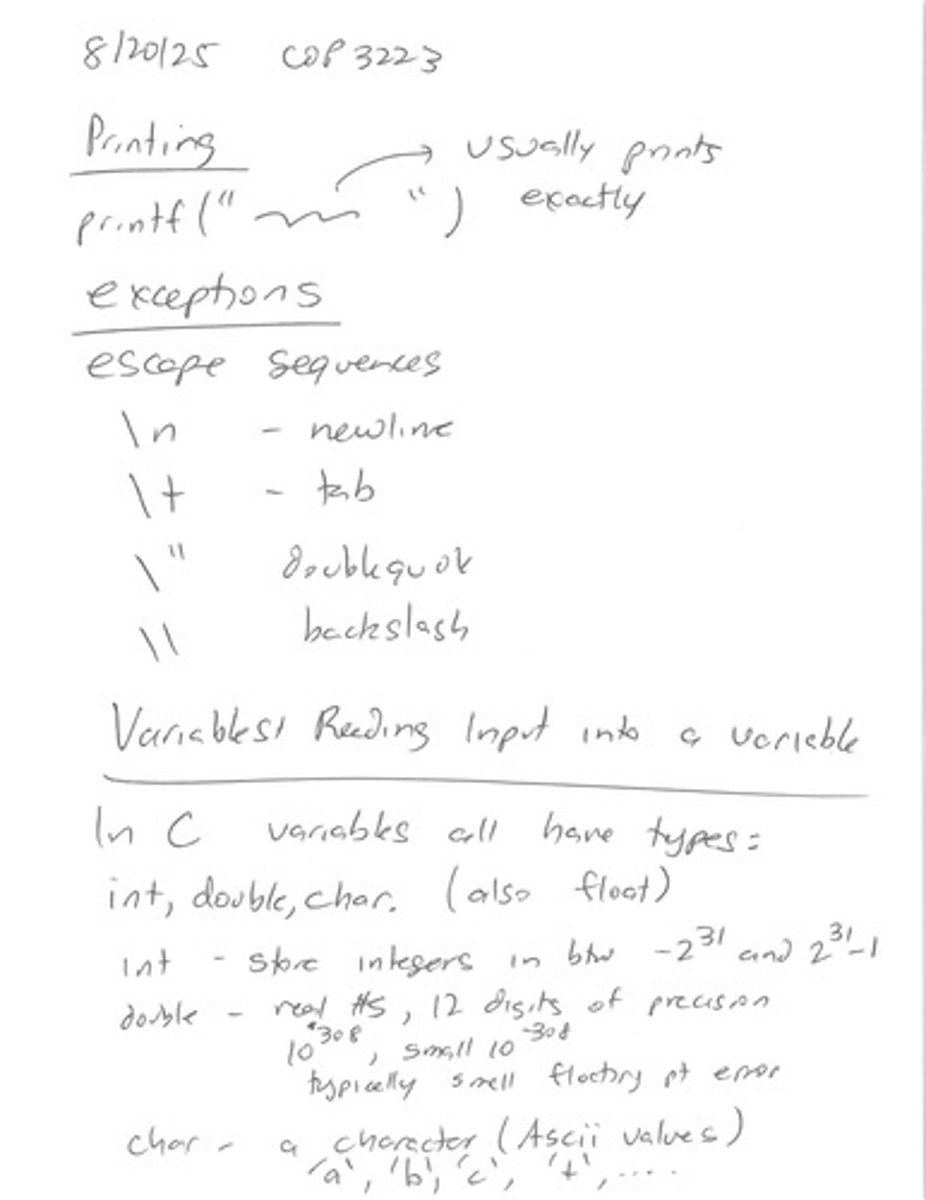 8/20/25 COP 3223
Printing
printf(" ") → usually prints
exactly
exceptions
escape sequences
\n - newline
\t - tab
\" doublequote
\\ backslash
Variables, Reading Input into a variable
In C variables all have types:
int, double, char. (also float)
int - store integers in btw -2^31 and 2^31-1
double - real #s, 12 digits of precision
10^308, small 10^-308
typically small floating pt error
char - a character (Ascii values)
'a', 'b', 'c', 't', ....